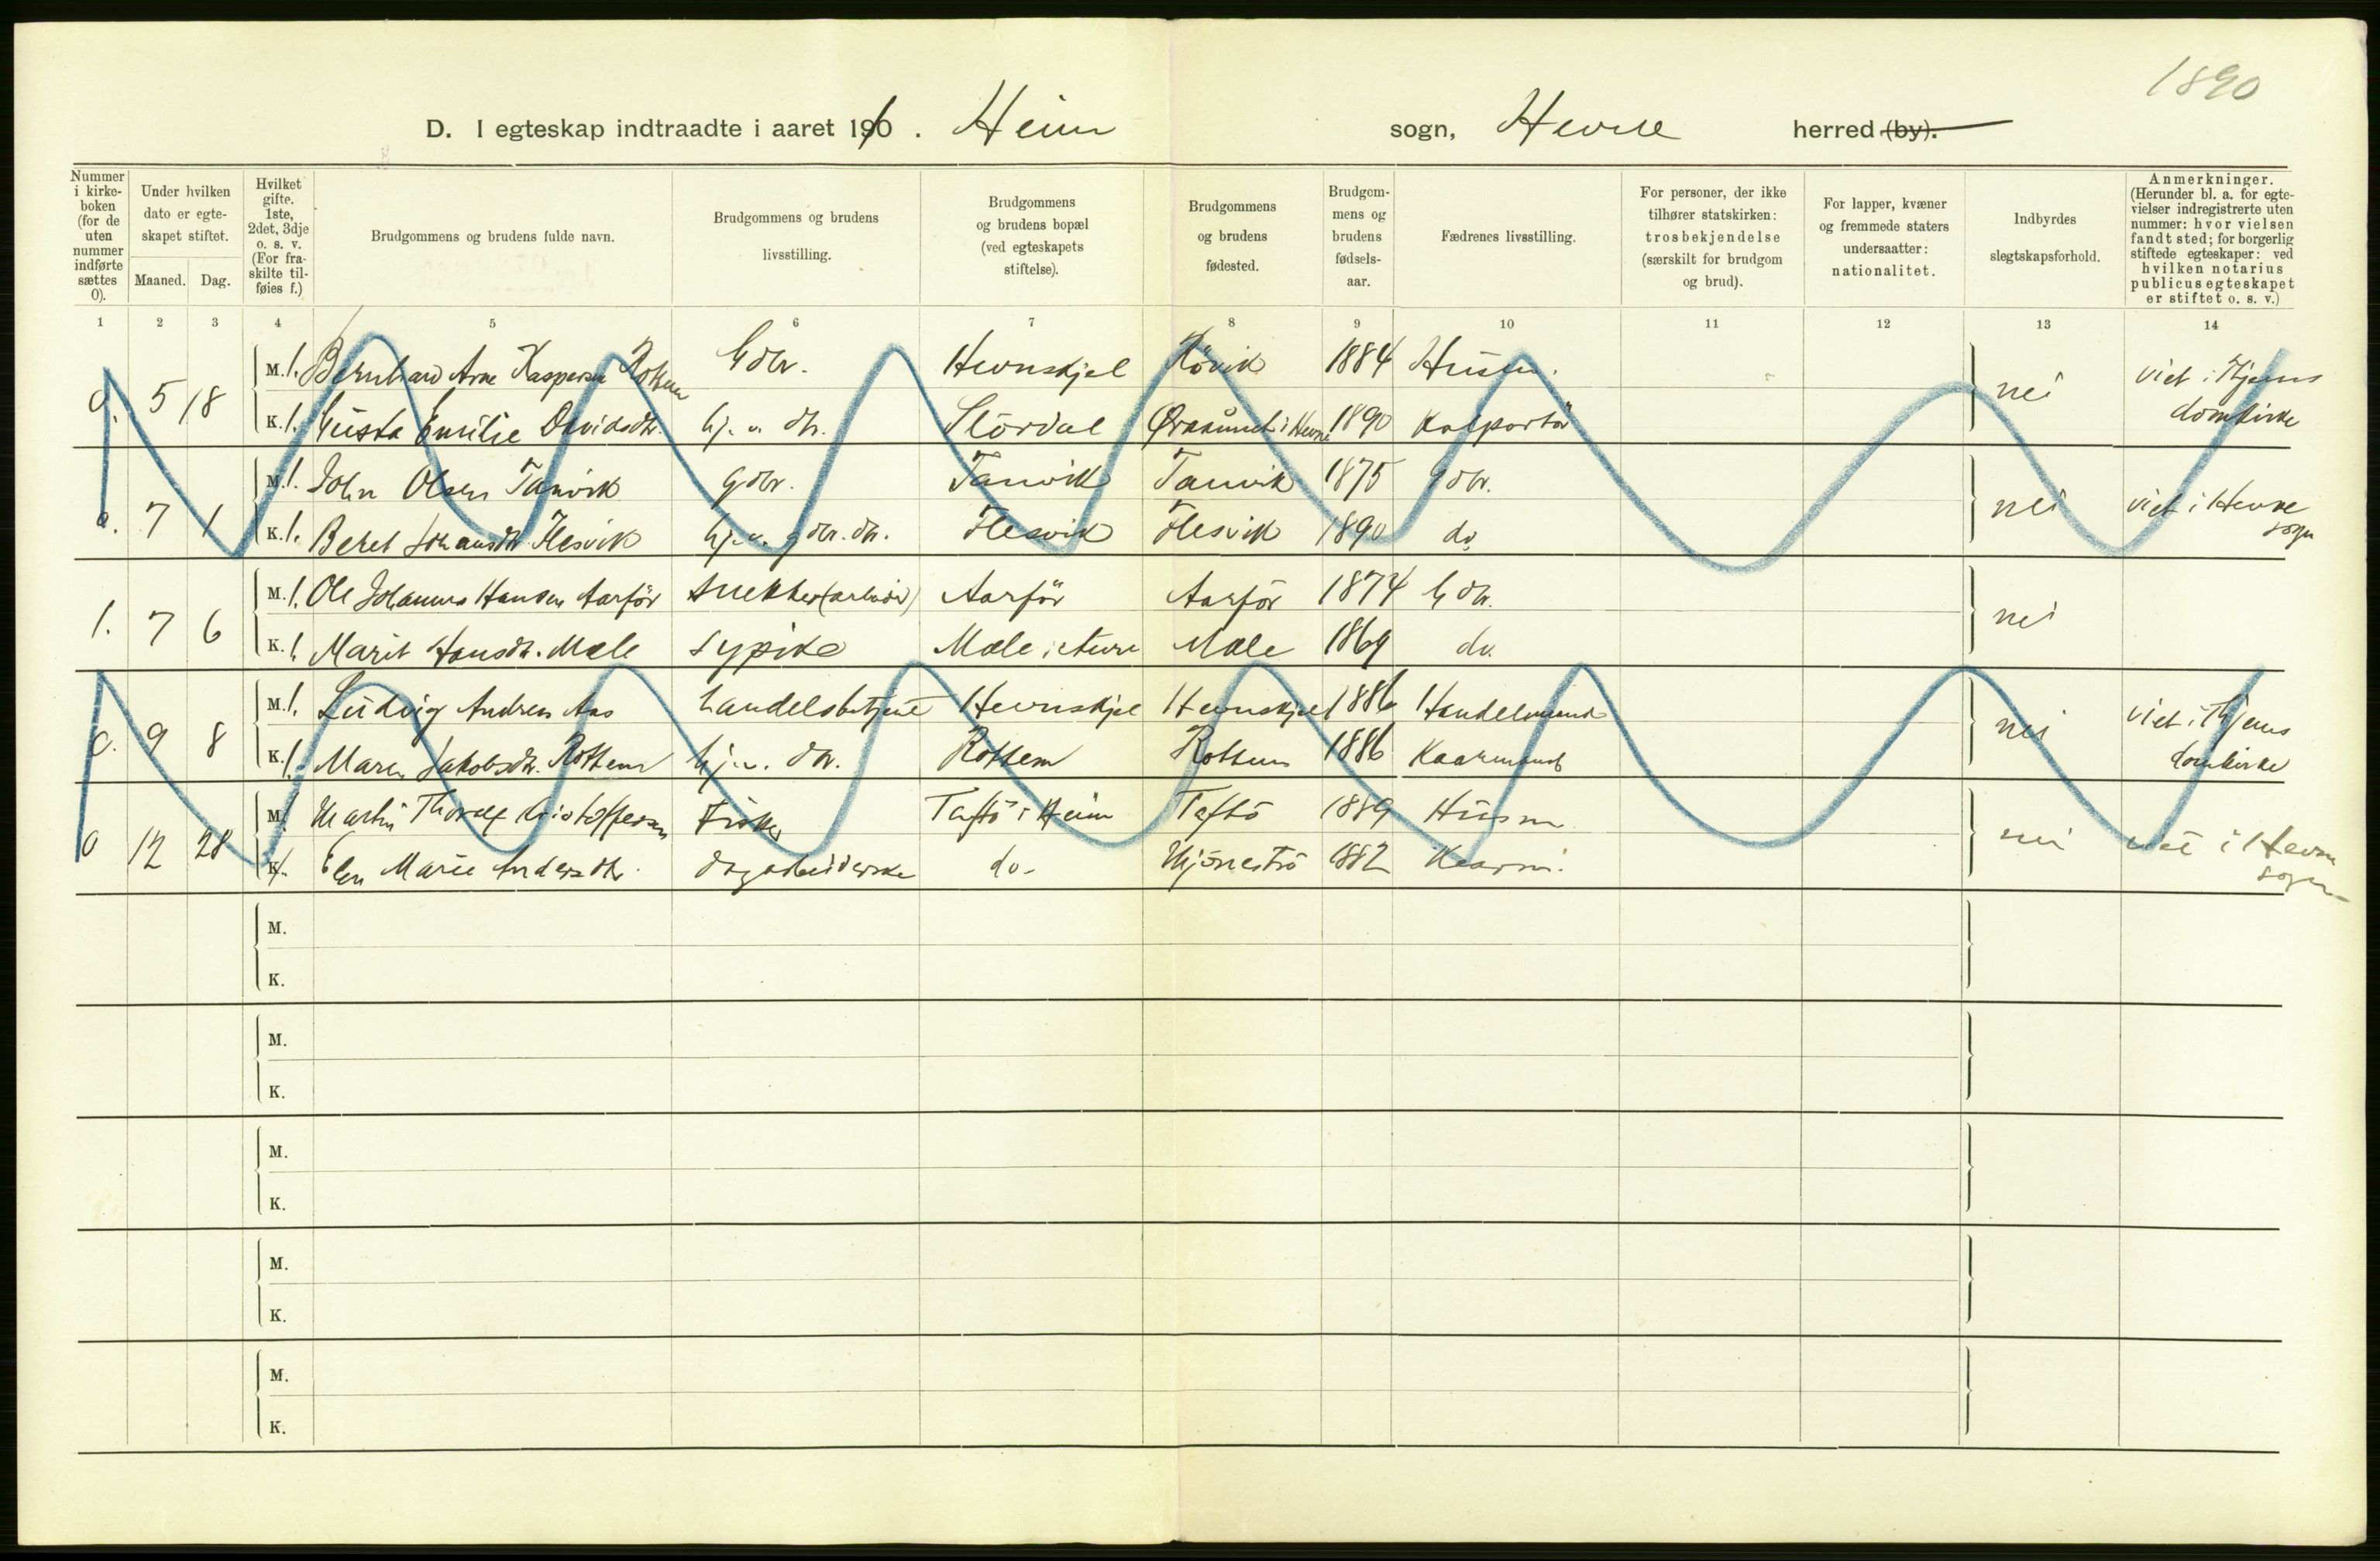 1890
D. I egteskap indtraadte i aaret 1910. Heim sogn, Hevne herred (by).
Nummer i kirkeboken (for de uten nummer indførte sættes 0).
Under hvilken dato er egteskapet stiftet.
Maaned. Dag.
Hvilket gifte. 1ste, 2det, 3dje o. s. v. (For fraskilte tilføies f.)
Brudgommens og brudens fulde navn.
Brudgommens og brudens livsstilling.
Brudgommens og brudens bopæl (ved egteskapets stiftelse).
Brudgommens og brudens fødested.
Brudgommens og brudens fødselsaar.
Fædrenes livsstilling.
For personer, der ikke tilhører statskirken: trosbekjendelse (særskilt for brudgom og brud).
For lapper, kvæner og fremmede staters undersaatter: nationalitet.
Indbyrdes slegtskapsforhold.
Anmerkninger. (Herunder bl. a. for egtevielser indregistrerte uten nummer: hvor vielsen fandt sted; for borgerlig stiftede egteskaper: ved hvilken notarius publicus egteskapet er stiftet o. s. v.)
1 2 3 4 5 6 7 8 9 10 11 12 13 14
0. 5 18 M. 1. Bernhard Arne Kaspersen Rottem Gbr. Hevnskjel Røvik 1884 Husm. nei viet i Trhjems domkirke
K. 1. Gusta Emilie Davidsdtr. hj. v. dtr. Stördal Ørsaunet i Hevne 1890 Kolportör
0. 7 1 M. 1. John Olsen Tanvik gbr. Tanvik Tanvik 1875 gbr. nei viet i Hevne sogn
K. 1. Beret Johansdtr. Flesvik hj. v. gbr. dtr. Flesvik Flesvik 1890 do.
1. 7 6 M. 1. Ole Johannes Hansen Aarför snekker (arbeider) Aarför Aarför 1874 Gbr. nei
K. 1. Marit Hansdtr. Mæle sypike Mæle i Hevne Mæle 1869 do.
0. 9 8 M. 1. Ludvig Andreas Aas handelsbetjent Hevnskjel Hevnskjel 1886 Handelsmand nei viet i Trhjems domkirke
K. 1. Maren Jakobsdtr. Rottem hj. v. dtr. Rottem Rottem 1886 Kaarmand
0 12 28 M. 1. Martin Thoralf Kristoffersen Fisker Taftö i Heim Taftö 1889 Husm nei viet i Hevne sogn
K. 1. Elen Marie Andersdtr. dagarbeiderske do. 1882 Kaarm.
M.
K.
M.
K.
M.
K.
M.
K.
M.
K.